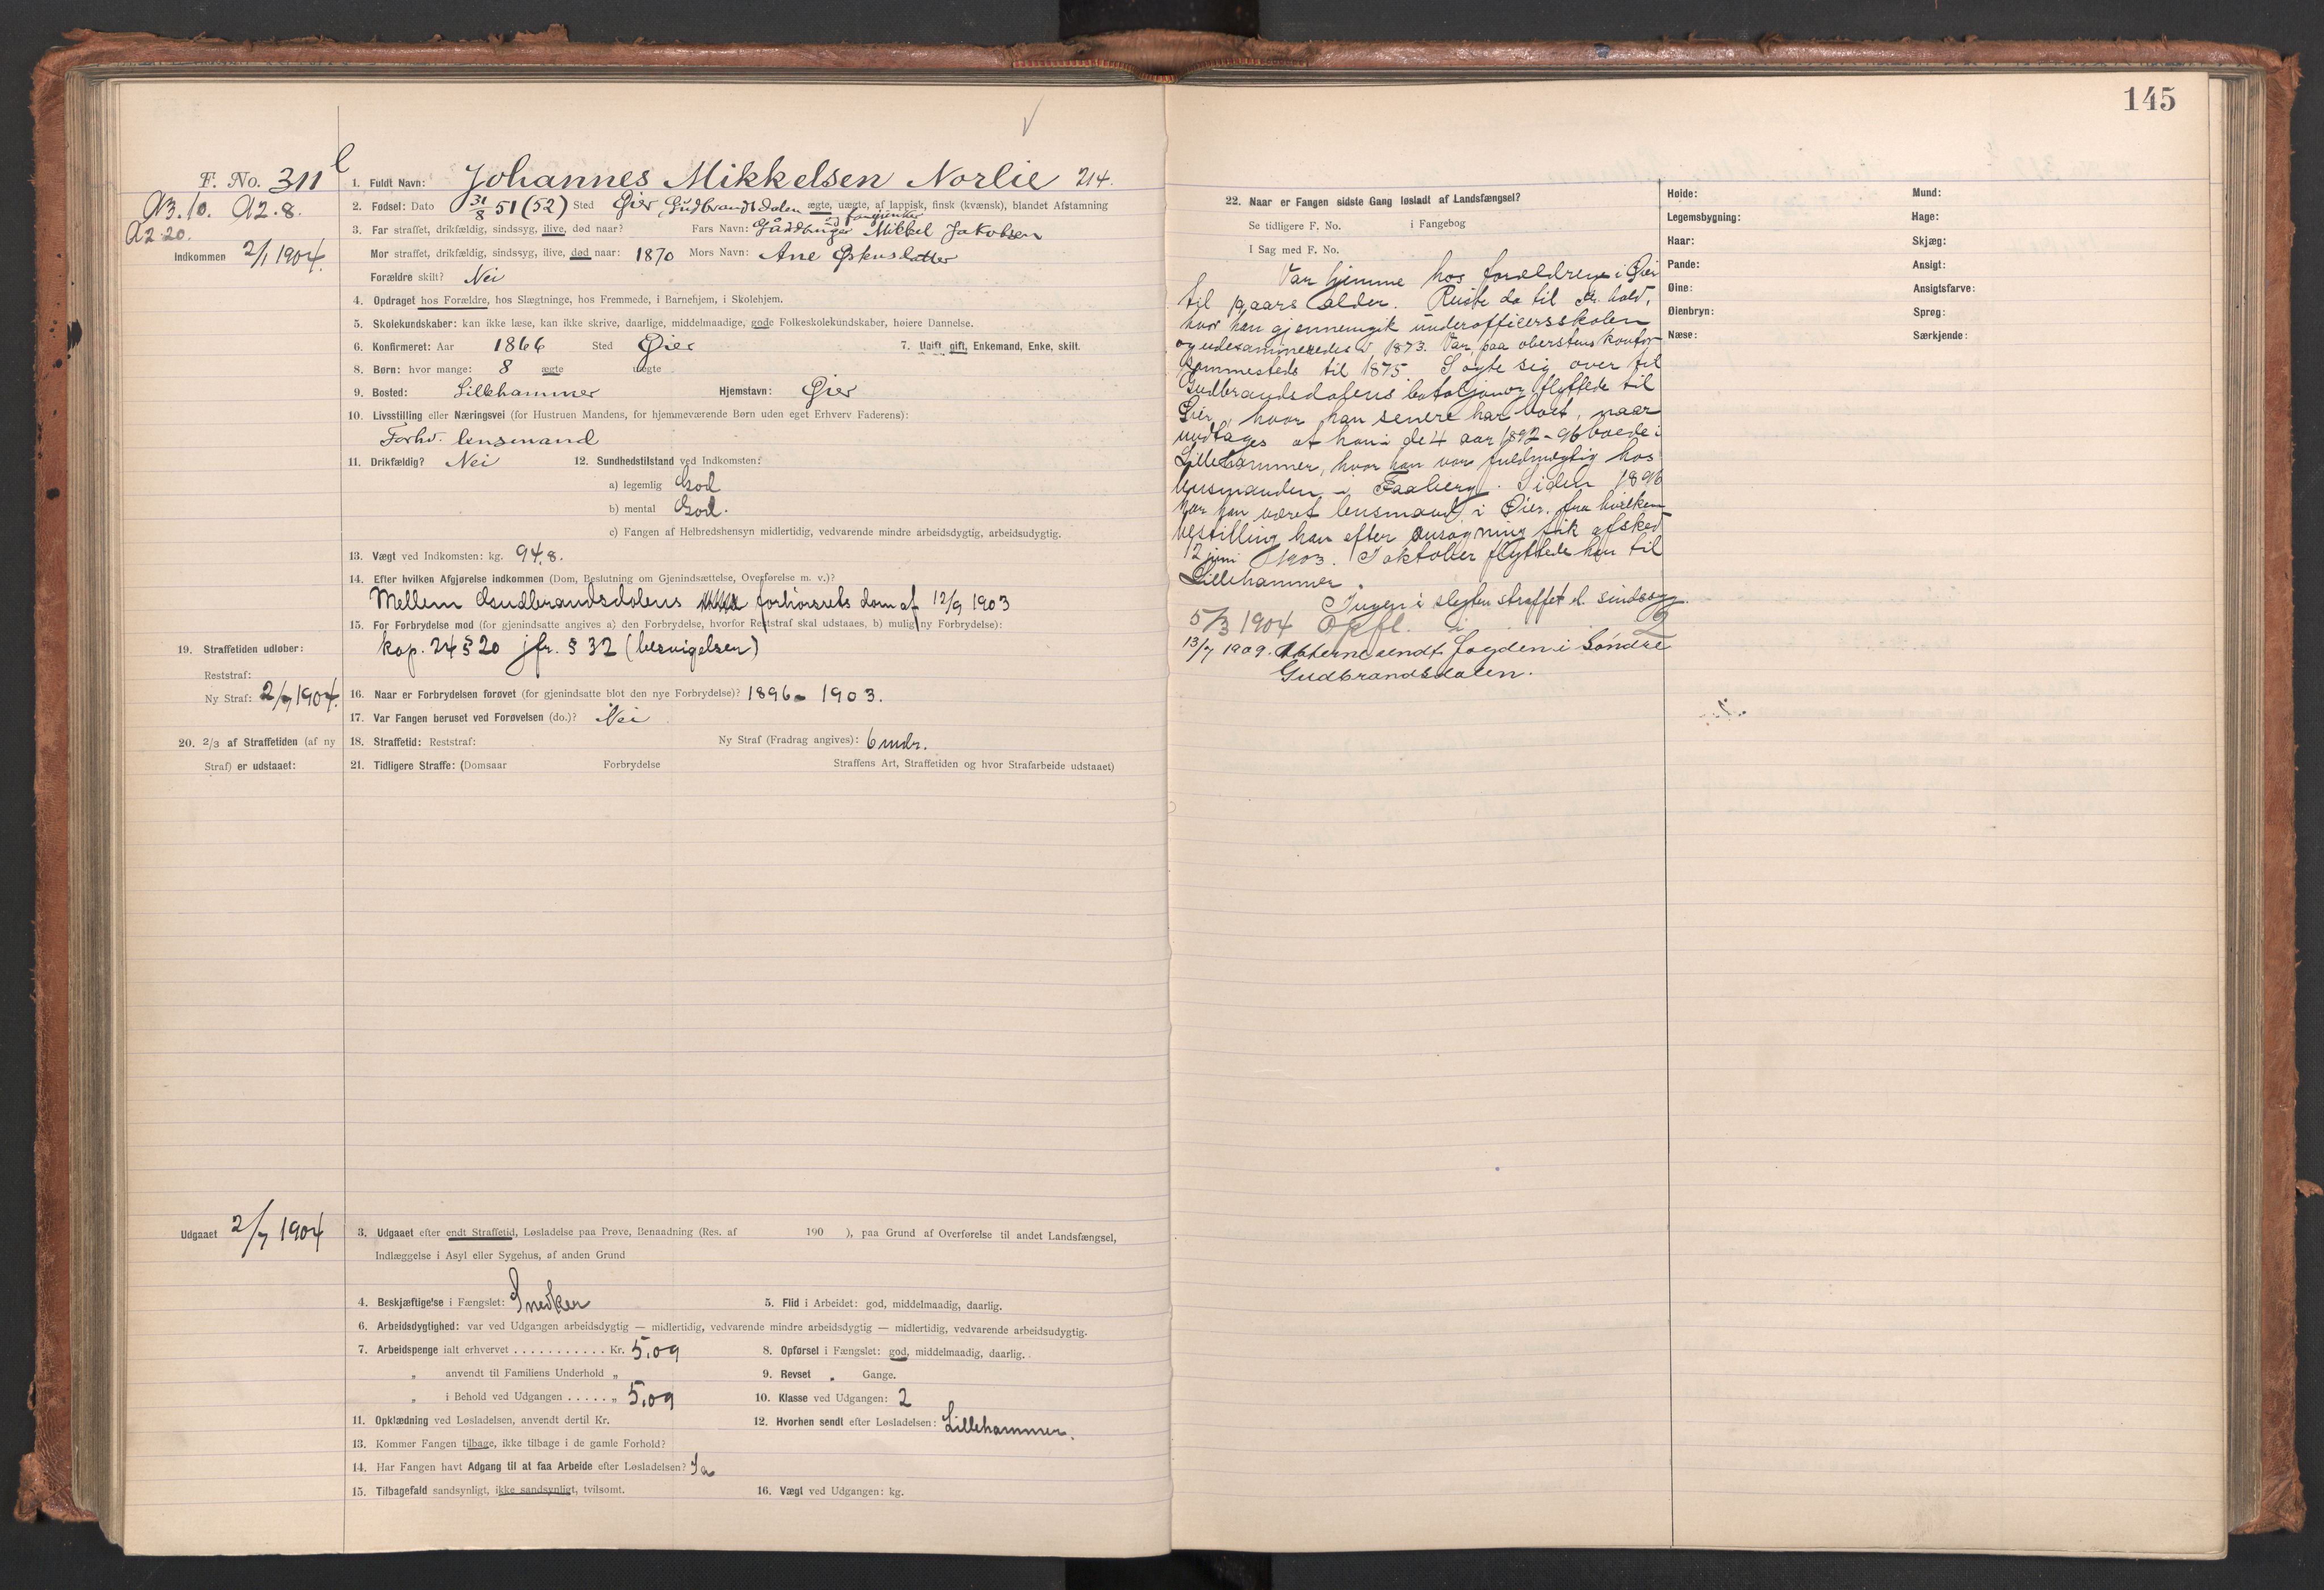 145
F. No. 311 l
A3.10. A2.8.
A2.20.
Indkommen 2/1 1904.
1. Fuldt Navn: Johannes Mikkelsen Norlie 214.
2. Fødsel: Dato 31/8 51 (52) Sted Øier, Gudbrandsdalen ægte, uægte, af lappisk, finsk (kvænsk), blandet Afstamning
3. Far straffet, drikfældig, sindssyg, ilive, død naar? Fars Navn: Mikkel Jakobsen
Mor straffet, drikfældig, sindssyg, ilive, død naar: 1870 Mors Navn: Ane
Forældre skilt? Nei
4. Opdraget hos Forældre, hos Slægtninge, hos Fremmede, i Barnehjem, i Skolehjem.
5. Skolekundskaber: kan ikke læse, kan ikke skrive, daarlige, middelmaadige, gode Folkeskolekundskaber, høiere Dannelse.
6. Konfirmeret: Aar 1866 Sted Øier 7. Ugift, gift, Enkemand, Enke, skilt.
8. Børn: hvor mange: 8 ægte uægte
9. Bosted: Lillehammer Hjemstavn: Øier
10. Livsstilling eller Næringsvei (for Hustruen Mandens, for hjemmeværende Børn uden eget Erhverv Faderens):
Forhv. lensmand
11. Drikfældig? Nei 12. Sundhedstilstand ved Indkomsten:
a) legemlig God
b) mental God.
c) Fangen af Helbredshensyn midlertidig, vedvarende mindre arbeidsdygtig, arbeidsudygtig.
13. Vægt ved Indkomsten: kg. 94,8.
14. Efter hvilken Afgjørelse indkommen (Dom, Beslutning om Gjenindsættelse, Overførelse m. v.)?
Mellem Gudbrandsdalens forhørsrets dom af 12/9 1903
15. For Forbrydelse mod (for gjenindsatte angives a) den Forbrydelse, hvorfor Reststraf skal udstaaes, b) mulig ny Forbrydelse):
kap. 24 § 20 jfr. § 32 (besvigelser)
19. Straffetiden udløber:
Reststraf:
Ny Straf: 2/7 1904.
16. Naar er Forbrydelsen forøvet (for gjenindsatte blot den nye Forbrydelse)? 1896 - 1903.
17. Var Fangen beruset ved Forøvelsen (do.)? Nei
20. 2/3 af Straffetiden (af ny
Straf) er udstaaet:
18. Straffetid: Reststraf: Ny Straf (Fradrag angives): 6 mdr.
21. Tidligere Straffe: (Domsaar Forbrydelse Straffens Art, Straffetiden og hvor Strafarbeide udstaaet)
Udgaaet 2/7 1904
3. Udgaaet efter endt Straffetid, Løsladelse paa Prøve, Benaadning (Res. af 190 ), paa Grund af Overførelse til andet Landsfængsel,
Indlæggelse i Asyl eller Sygehus, af anden Grund
4. Beskjæftigelse i Fængslet: Snedker 5. Flid i Arbeidet: god, middelmaadig, daarlig.
6. Arbeidsdygtighed: var ved Udgangen arbeidsdygtig — midlertidig, vedvarende mindre arbeidsdygtig — midlertidig, vedvarende arbeidsudygtig.
7. Arbeidspenge ialt erhvervet . . . . . . . . . . . Kr. 5,09 8. Opførsel i Fængslet: god, middelmaadig, daarlig.
„ anvendt til Familiens Underhold „ 9. Revset „ Gange.
„ i Behold ved Udgangen . . . . . „ 5,09 10. Klasse ved Udgangen: 2
11. Opklædning ved Løsladelsen, anvendt dertil Kr. 12. Hvorhen sendt efter Løsladelsen: Lillehammer.
13. Kommer Fangen tilbage, ikke tilbage i de gamle Forhold?
14. Har Fangen havt Adgang til at faa Arbeide efter Løsladelsen? Ja
15. Tilbagefald sandsynligt, ikke sandsynligt, tvilsomt. 16. Vægt ved Udgangen: kg.
22. Naar er Fangen sidste Gang løsladt af Landsfængsel?
Se tidligere F. No. i Fangebog
I Sag med F. No.
Var hjemme hos forældrene i Øier
til aars alder. Reiste da til
hvor han gjennemgik underofficersskolen
og udexamineredes i 1873. Var paa oberstens kontor
sammesteds til 1875. Søgte sig over til
Gudbrandsdalens bataljon og flyttede til
Øier, hvor han senere har boet, naar
undtages at han i de 4 aar 1892-96 boede i
Lillehammer, hvor han var fuldmægtig hos
lensmanden i Faaberg. Siden 1896
har han været lensmand i Øier, fra hvilken
bestilling han efter ansøgning fik afsked
12 juni 1903. I oktober flyttede han til
Lillehammer.
Ingen i slegten straffet el. sindssyg.
5/3 1904 Opfl. i 2
13/7 1909. Akterne sendt Fogden i Søndre
Gudbrandsdalen.
Høide: Mund:
Legemsbygning: Hage:
Haar: Skjæg:
Pande: Ansigt:
Øine: Ansigtsfarve:
Øienbryn: Sprog:
Næse: Særkjende: